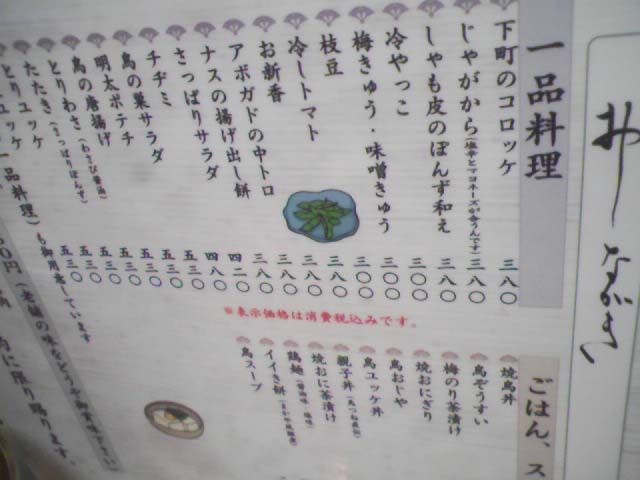 おしながき
一品料理
下町のコロッケ 三八〇
じゃがから(塩辛とマヨネーズが合うんです) 三八〇
しゃも皮のぽんず和え 三〇〇
冷やっこ 三〇〇
梅きゅう・味噌きゅう 三〇〇
枝豆 三八〇
冷しトマト 三八〇
お新香 三八〇
アボガドの中トロ 四二〇
ナスの揚げ出し餅 四八〇
さっぱりサラダ 五三〇
チヂミ 五三〇
鳥の巣サラダ 五三〇
明太ポテチ 五三〇
鳥の唐揚げ 五三〇
とりわさ(わさび醤油)
たたき(さっぱりぽんず)
とりユッケ
一品料理)も御用意しています
円(老舗の味をどうぞ御賞味下さい
に限り賜ります。
※表示価格は消費税込みです。
ごはん、ス
焼鳥丼
鳥ぞうすい
梅のり茶漬け
焼おにぎり
鳥おじや
鳥ユッケ丼
親子丼
焼おに茶漬け
鶏麺
イイダ餅
鳥スープ